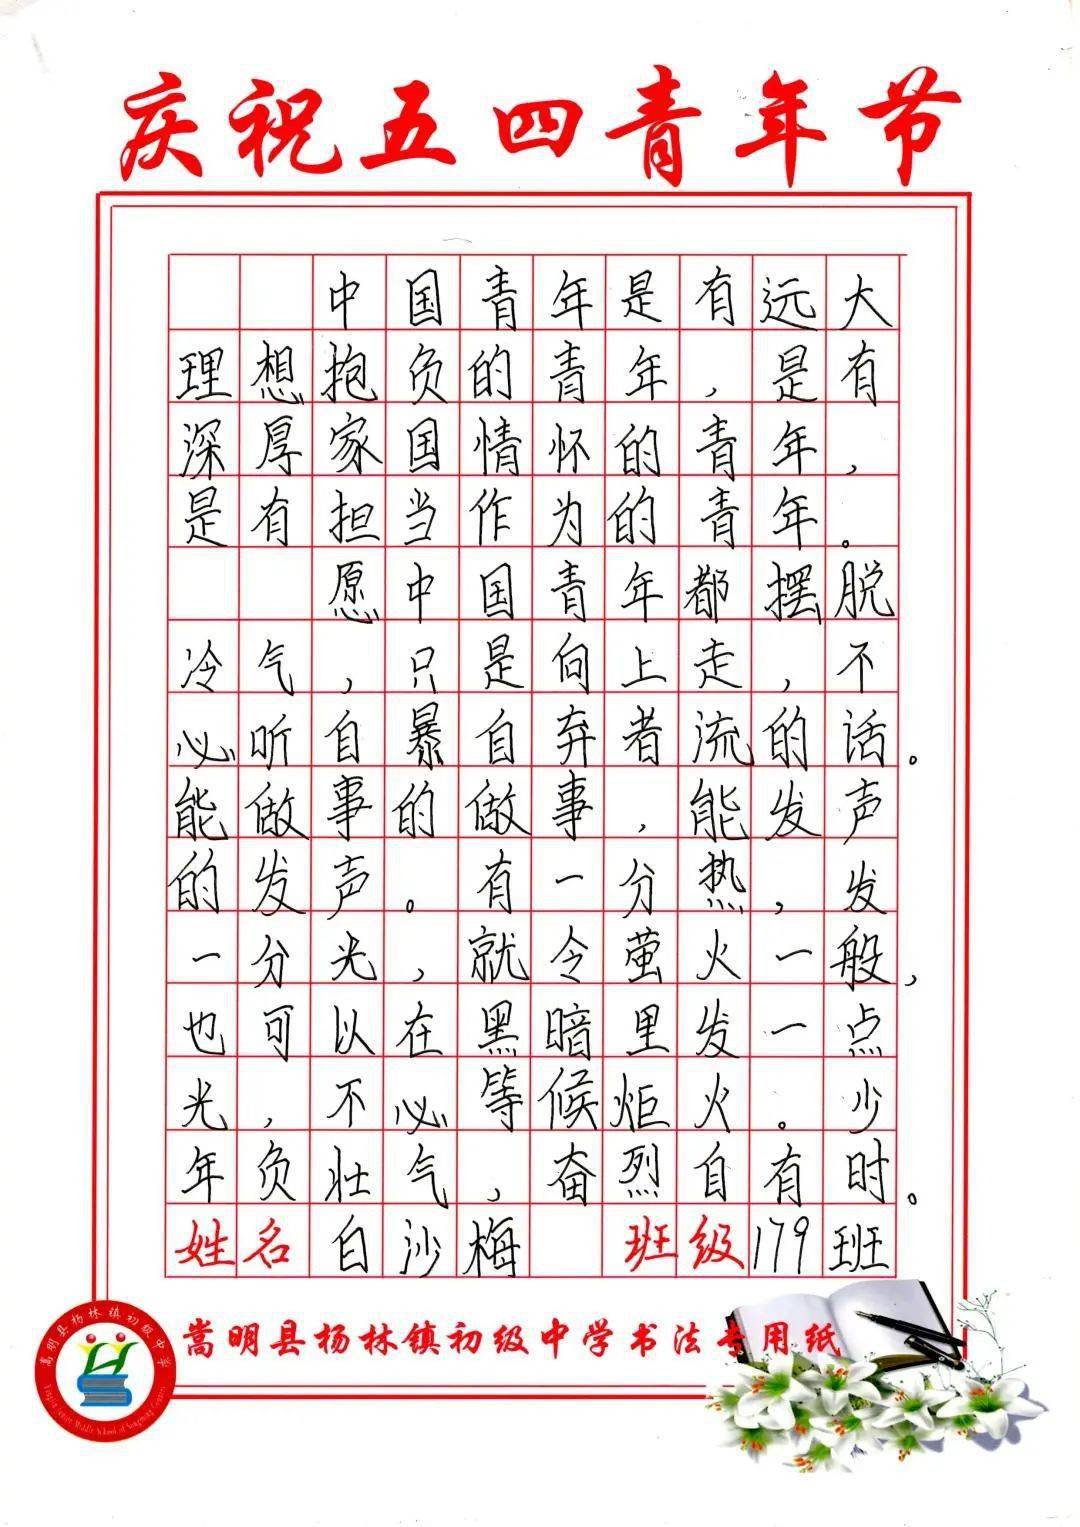 庆祝五四青年节
中国青年是有远大
理想抱负的青年，是有
深厚家国情怀的青年，
是有担当作为的青年。
愿中国青年都摆脱
冷气，只是向上走，不
必听自暴自弃者流的话。
能做事的做事，能发声
的发声。有一分热，发
一分光，就令萤火一般，
也可以在黑暗里发一点
光，不必等候炬火。少
年负壮气，奋烈自有时。
姓名白沙梅 班级179班
嵩明县杨林镇初级中学书法专用纸
嵩明县杨林镇初级中学